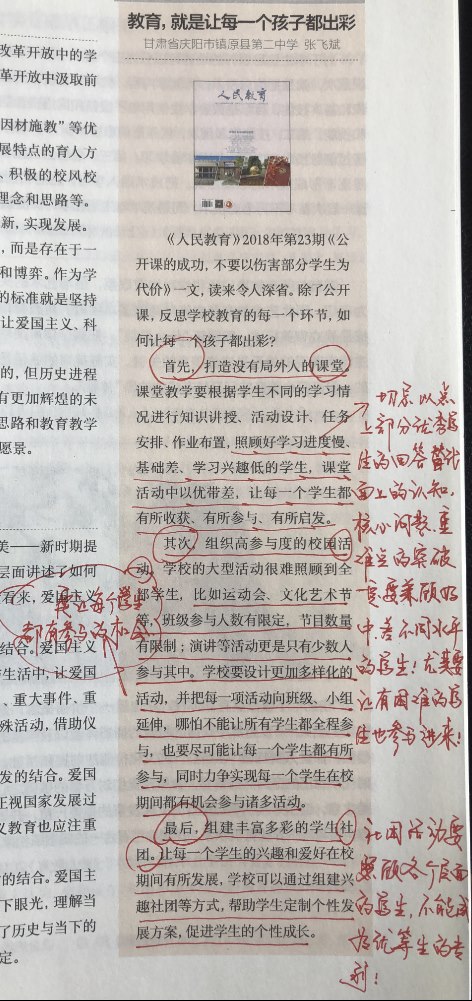 教育，就是让每一个孩子都出彩
甘肃省庆阳市镇原县第二中学 张飞斌
人民教育
《人民教育》2018年第23期《公
开课的成功，不要以伤害部分学生为
代价》一文，读来令人深省。除了公开
课，反思学校教育的每一个环节，如
何让每一个孩子都出彩？
首先，打造没有局外人的课堂。
课堂教学要根据学生不同的学习情
况进行知识讲授、活动设计、任务
安排、作业布置，照顾好学习进度慢、
基础差、学习兴趣低的学生，课堂
活动中以优带差，让每一个学生都
有所收获、有所参与、有所启发。
其次，组织高参与度的校园活
动。学校的大型活动很难照顾到全
部学生，比如运动会、文化艺术节
等，班级参与人数有限定，节目数量
有限制；演讲等活动更是只有少数人
参与其中。学校要设计更加多样化的
活动，并把每一项活动向班级、小组
延伸，哪怕不能让所有学生都全程参
与，也要尽可能让每一个学生都有所
参与，同时力争实现每一个学生在校
期间都有机会参与诸多活动。
最后，组建丰富多彩的学生社
团。让每一个学生的兴趣和爱好在校
期间有所发展，学校可以通过组建兴
趣社团等方式，帮助学生定制个性发
展方案，促进学生的个性成长。
改革开放中的学
革开放中汲取前
因材施教”等优
展特点的育人方
、积极的校风校
理念和思路等。
新，实现发展。
，而是存在于一
和博弈。作为学
的标准就是坚持
让爱国主义、科
的，但历史进程
有更加辉煌的未
思路和教育教学
愿景。
美——新时期提
层面讲述了如何
看来，爱国主义
结合。爱国主义
生活中，让爱国
、重大事件、重
殊活动，借助仪
发的结合。爱国
正视国家发展过
义教育也应注重
的结合。爱国主
下眼光，理解当
了历史与当下的
定。
要让每个学生
都有参与的机会
切忌以点
上部分优秀学
生的回答替代
面上的认知，
核心问题、重
难点的突破
一定要兼顾好
中差不同水平
的学生！尤其要
让有困难的学
生也参与进来！
社团活动要
照顾各个层面
的学生，不能成
为优等生的专
利！